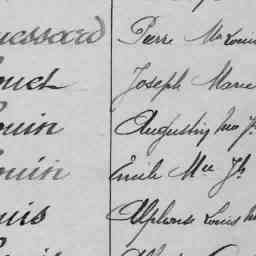 uessard Pierre Me Louis
ouet Joseph Marie
ouin Augustin
ouin Emile Mee Jh
uis Alphonse Louis